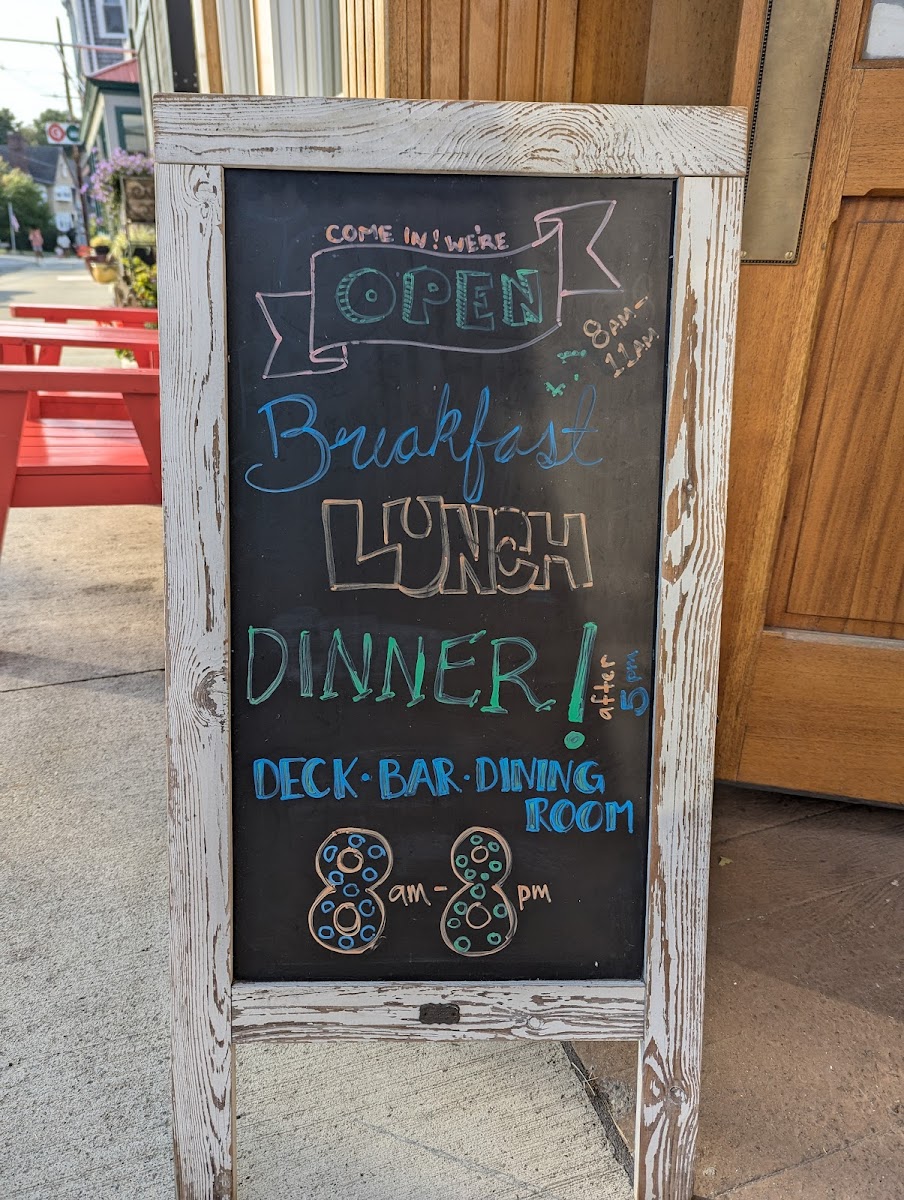 COME IN! WE'RE
OPEN
8AM-
11AM
Breakfast
LUNCH
DINNER!
after
5pm
DECK · BAR · DINING
ROOM
8am-8pm